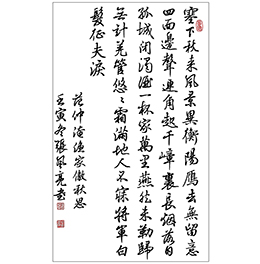 塞下秋来風景異衡陽雁去無留意
四面邊聲連角起千嶂裏長烟落日
孤城閉濁酒一杯家萬里燕然未勒歸
無計羌管悠悠霜滿地人不寐將軍白
髮征夫淚
范仲淹漁家傲秋思
壬寅冬張風亮書